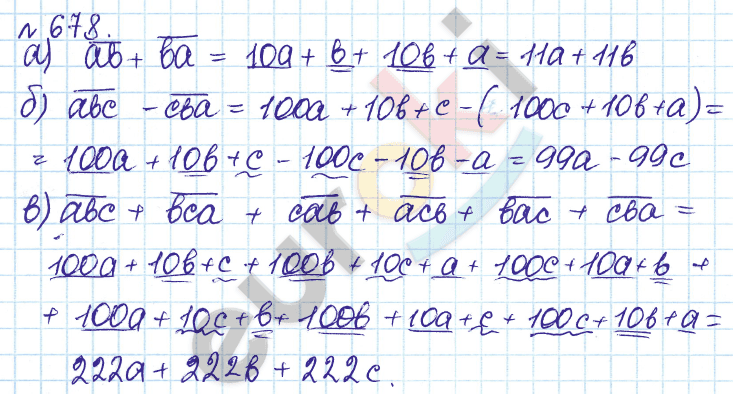 № 678.
а) a̅b̅ + b̅a̅ = 10a + b + 10b + a = 11a + 11b
б) a̅b̅c̅ - c̅b̅a̅ = 100a + 10b + c - (100c + 10b + a) =
= 100a + 10b + c - 100c - 10b - a = 99a - 99c
в) a̅b̅c̅ + b̅c̅a̅ + c̅a̅b̅ + a̅c̅b̅ + b̅a̅c̅ + c̅b̅a̅ =
100a + 10b + c + 100b + 10c + a + 100c + 10a + b +
+ 100a + 10c + b + 100b + 10a + c + 100c + 10b + a =
222a + 222b + 222c.
euroki